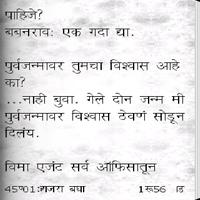 पाहिजे?
बबनराव: एक गदा द्या.
पुर्वजन्मावर तुमचा विश्वास आहे
का?
...नाही बुवा. गेले दोन जन्म मी
पुर्वजन्मावर विश्वास ठेवणं सोडून
दिलंय.
विमा एजंट सर्व ऑफिसातून